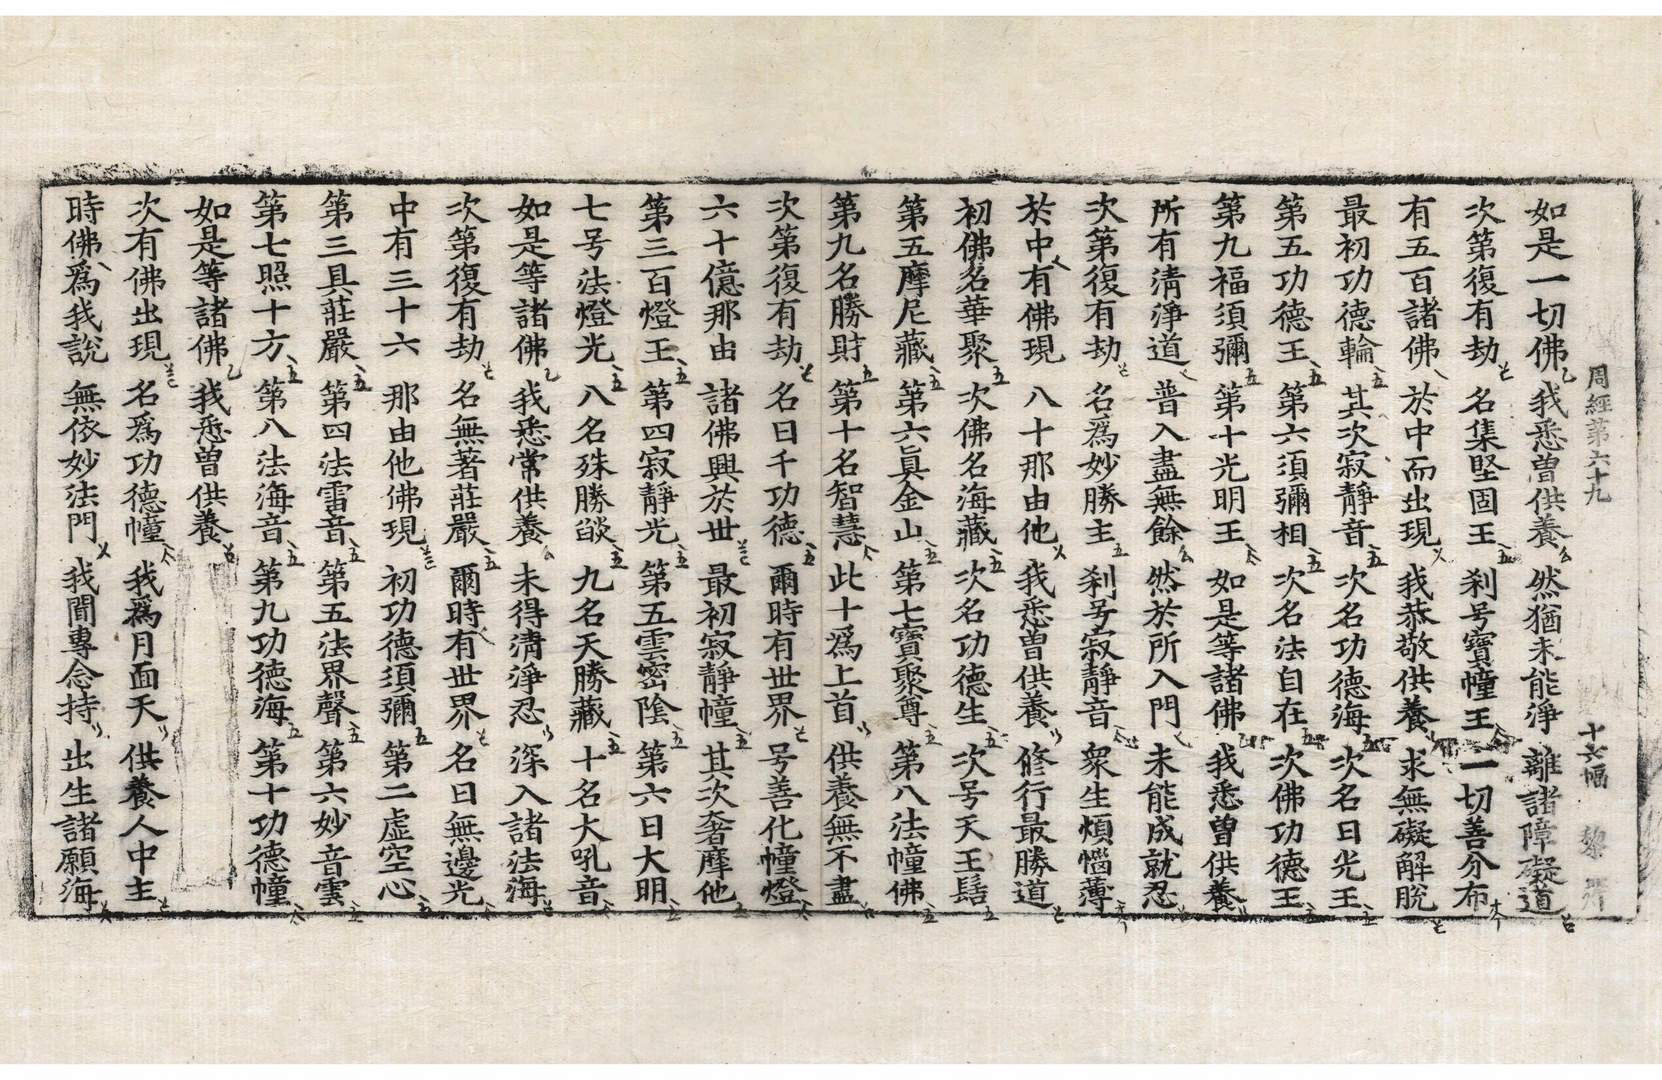 周經第六十九 十六幅
如是一切佛 我悉曾供養 然猶未能淨 離諸障礙道
次第復有劫 名集堅固王 刹号寶幢王 一切善分布
有五百諸佛 於中而出現 我恭敬供養 求無礙解脫
最初功德輪 其次寂靜音 次名功德海 次名日光王
第五功德王 第六須彌相 次名法自在 次佛功德王
第九福須彌 第十光明王 如是等諸佛 我悉曾供養
所有清淨道 普入盡無餘 然於所入門 未能成就忍
次第復有劫 名爲妙勝主 刹号寂靜音 衆生煩惱薄
於中有佛現 八十那由他 我悉曾供養 修行最勝道
初佛名華聚 次佛名海藏 次名功德生 次号天王髻
第五摩尼藏 第六眞金山 第七寶聚尊 第八法幢佛
第九名勝財 第十名智慧 此十爲上首 供養無不盡
次第復有劫 名曰千功德 爾時有世界 号善化幢燈
六十億那由 諸佛興於世 最初寂靜幢 其次奢摩他
第三百燈王 第四寂靜光 第五雲密陰 第六日大明
七号法燈光 八名殊勝焰 九名天勝藏 十名大吼音
如是等諸佛 我悉常供養 未得清淨忍 深入諸法海
次第復有劫 名無著莊嚴 爾時有世界 名曰無邊光
中有三十六 那由他佛現 初功德須彌 第二虛空心
第三具莊嚴 第四法雷音 第五法界聲 第六妙音雲
第七照十方 第八法海音 第九功德海 第十功德幢
如是等諸佛 我悉曾供養
次有佛出現 名爲功德幢 我爲月面天 供養人中主
時佛爲我說 無依妙法門 我聞專念持 出生諸願海